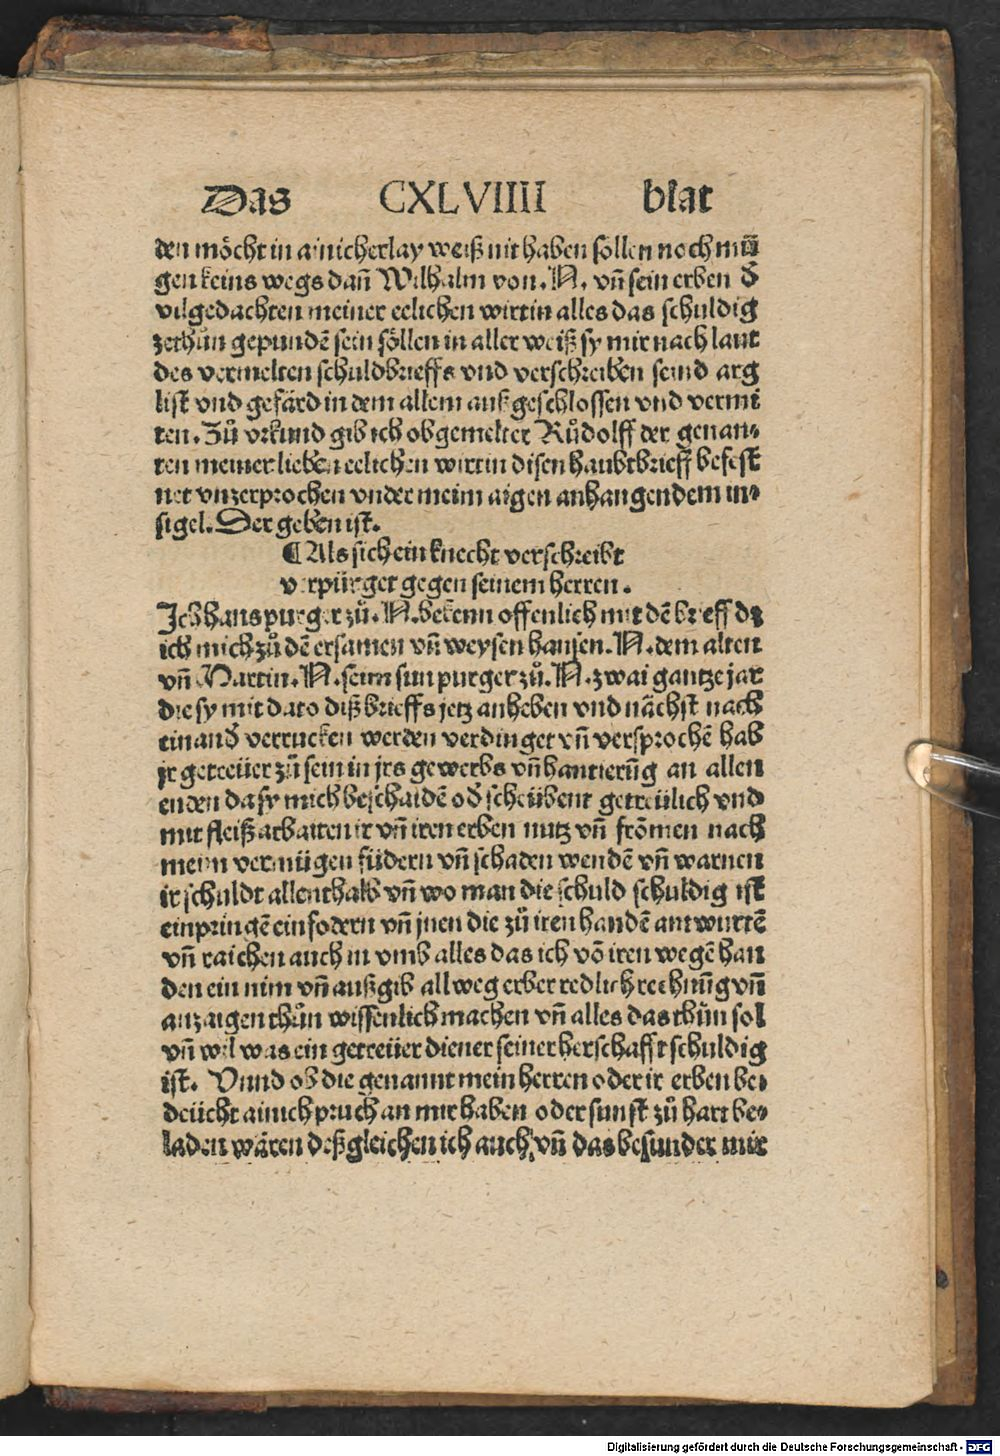 Das CXLVIIII blat
den möcht in ainicherlay weiß nit haben söllen noch mü̃
gen keins wegs dañ Wilhalm von. N. vñ sein erben d̄
vilgedachten meiner eelichen wirtin alles das schuldig
zethůn gepundẽ sein söllen in aller weiß sy mir nach laut
des vermelten schuldbrieffs vnd verschreiben seind arg
list vnd gefärd in dem allem außgeschlossen vnd vermi
ten. Zů vrkund gib ich obgemelter Růdolff der genan⸗
ten meiner lieben eelichen wirtin disen haubtbrieff befest
net vnzerprochen vnder meim aigen anhangendem in⸗
sigel. Der geben ist.
¶ Als sich ein knecht verschreibt
verpürget gegen seinem herren.
Ich hans purger zů. N. bekenn offenlich mit dẽ brieff dz
ich mich zů dẽ ersamen vñ weysen hansen. N. dem alten
vñ Martin. N. seim sun purger zů. N. zwai gantze jar
die sy mit dato diß brieffs jetz anheben vnd nächst nach
einand̄ verrucken werden verdinget vñ versprochẽ hab
jr getreüer zů sein in jrs gewerbs vñ hantierũg an allen
enden da sy mich beschaidẽ od̄ scheübent getreülich vnd
mit fleiß arbaiten ir vñ iren erben nutz vñ frõmen nach
meim vermügen füdern vñ schaden wendẽ vñ warnen
ir schuldt allenthalb vñ wo man die schuld schuldig ist
einpringẽ einfodern vñ jnen die zů iren handẽ antwurtẽ
vñ raichen auch in vmb alles das ich võ iren wegẽ han
den ein nim vñ außgib allweg erber redlich rechnũg vñ
anzaigen thůn wissenlich machen vñ alles das thůn sol
vñ wil was ein getreüer diener seiner herschafft schuldig
ist. Vnnd ob die genannt mein herren oder ir erben be⸗
deücht ainich pruch an mir haben oder sunst zů hart be⸗
laden wären deßgleichen ich auch, vñ das besunder mir
Digitalisierung gefördert durch die Deutsche Forschungsgemeinschaft - DFG